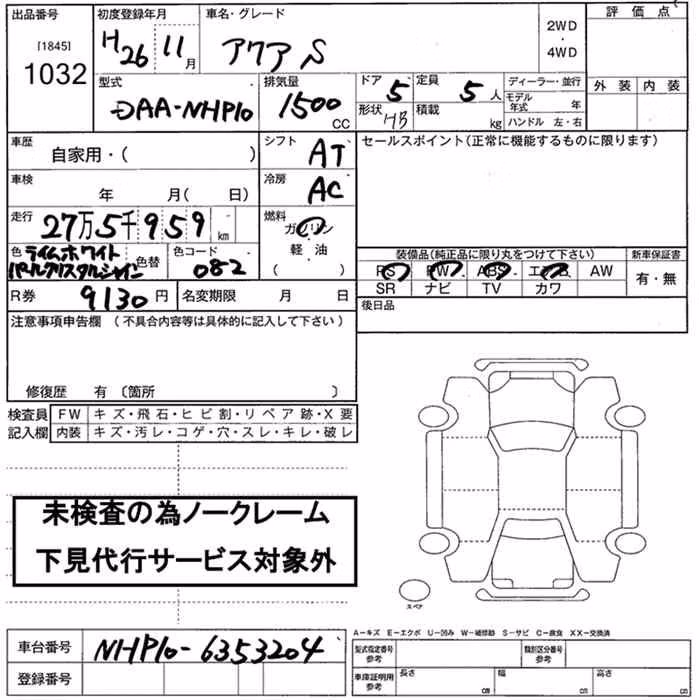 出品番号 初度登録年月 車名・グレード 評価点
［1845］ H26 11月 アクア S 2WD ・ 4WD
1032
型式 排気量 ドア 5 定員 5人 ディーラー・並行 外装 内装
DAA-NHP10 1500CC 形状 HB 積載 kg モデル年式 年
ハンドル 左・右
車歴 シフト セールスポイント(正常に機能するものに限ります)
自家用・( ) AT
車検 年 月( 日) 冷房 AC
走行 27万5千959km 燃料 ガソリン
軽・油
( )
色 ライムホワイト 色替 色コード 装備品(純正品に限り丸をつけて下さい) 新車保証書
パールクリスタルシャイン 082 PS PW ABS エアB AW 有・無
SR ナビ TV カワ
R券 9130円 名変期限 月 日 後日品
注意事項申告欄 (不具合内容等は具体的に記入して下さい)
修復歴 有 〔箇所 〕
検査員 FW キズ・飛石・ヒビ割・リペア跡・X要
記入欄 内装 キズ・汚レ・コゲ・穴・スレ・キレ・破レ
未検査の為ノークレーム
下見代行サービス対象外
スペア
A－キズ E－エクボ U－凹み W－補修跡 S－サビ C－腐食 XX－交換済
車台番号 NHP10-6353204 型式指定番号 参考 類別区分番号 参考
登録番号 車庫証明用 参考 長さ cm 幅 cm 高さ cm